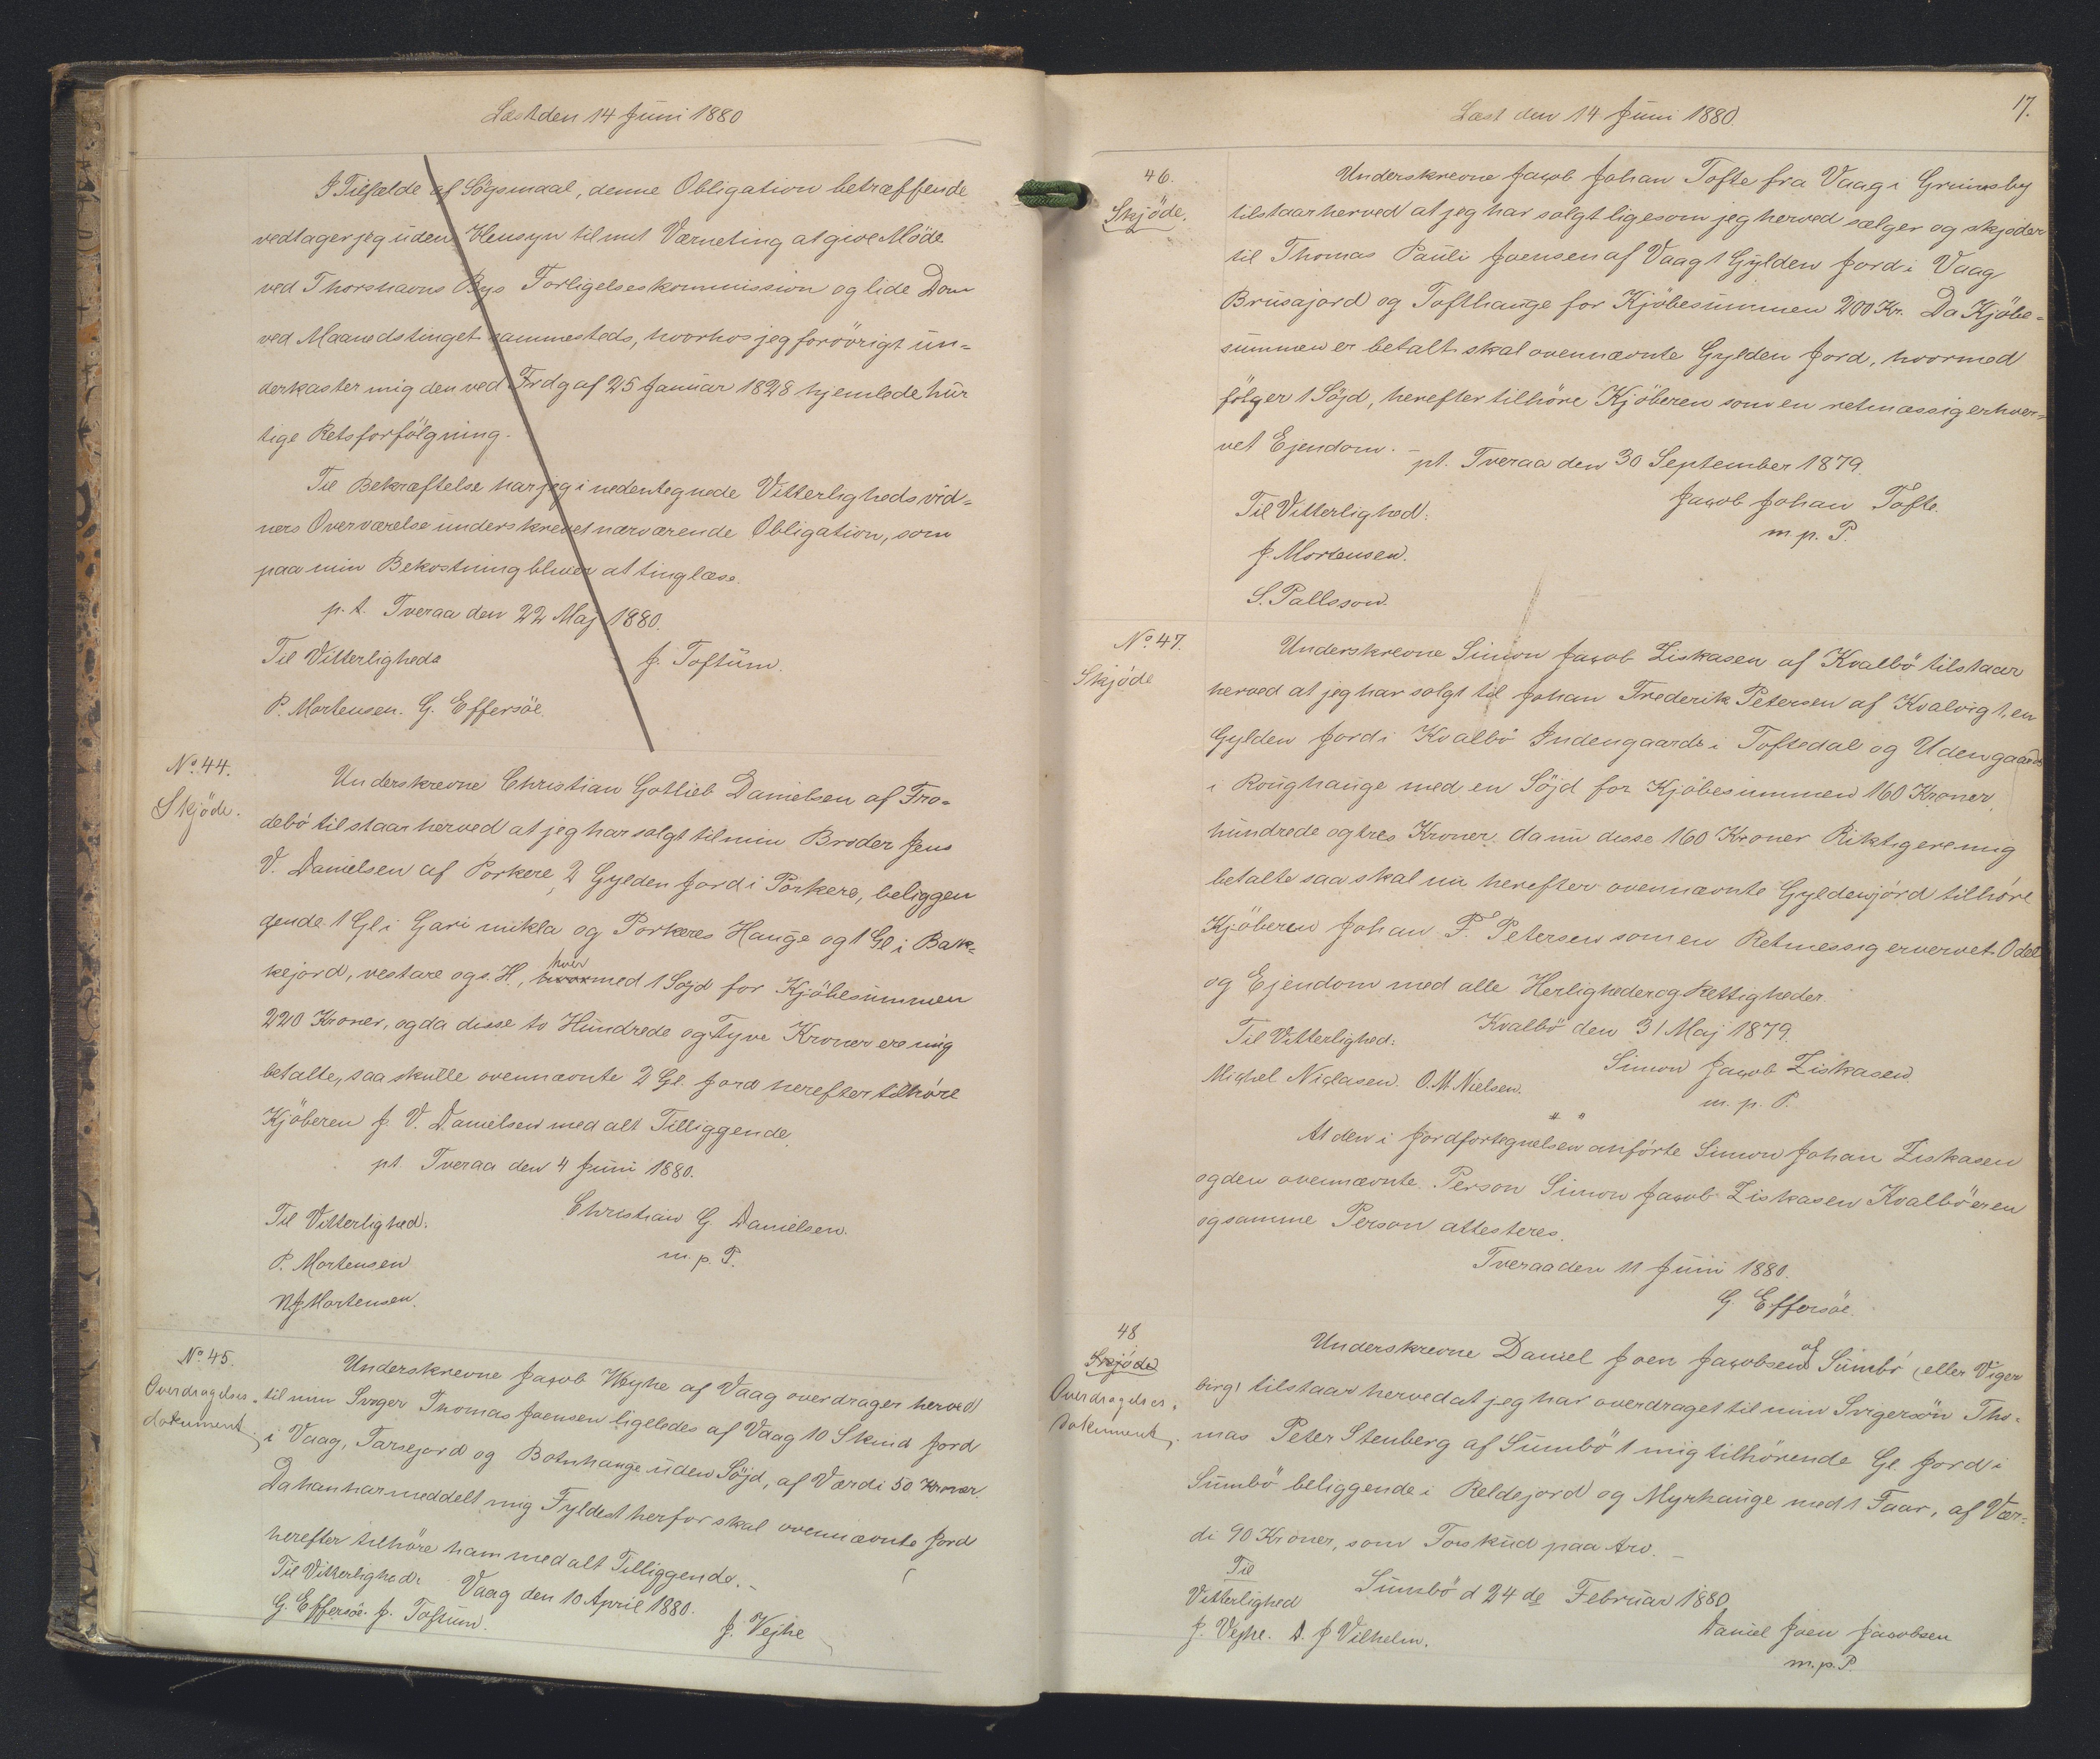 Læst den 14 Juni 1880
I Tilfælde af Søgsmaal, denne Obligation betræffende
vedtager jeg uden Hensyn til mit Værneting at give Möde
ved Thorshavns Bys Forligelseskommission og lide Dom
ved Maanedstinget sammesteds, hvorhos jeg forövrigt un=
derkaster mig den ved Frdg af 25 Januar 1828 hjemlede hur
tige Retsforfölgning.
Til Bekræftelse har jeg i nedentegnede Vitterlighedsvid=
ners Overværelse underskrevet nærværende Obligation, som
paa min Bekostning bliver at tinglæse.
p. t. Tveraa den 22 Maj 1880.
Til Vitterligheds
J. Toftum.
P. Mortensen. G. Effersöe
No. 44.
Skjöde.
Underskrevne Christian Gotlieb Danielsen af Fro=
debö tilstaar herved at jeg har solgt til min Broder Jens
V. Danielsen af Porkere, 2 Gylden Jord i Porkere, beliggen
gende 1 Gl i Gari mikla og Porkeres Hauge og 1 Gl i Bak=
kejord, vestare ogs. H., hver med 1 Söjd for Kjöbesummen
220 Kroner, og da disse to Hundrede og Tyve Kroner ere mig
betalte, saa skulle ovennævnte 2 Gl. Jord herefter tilhöre
Kjöberen J. V. Danielsen med alt Tilliggende.
pt. Tveraa den 4 Juni 1880.
Til Vitterlighed:
Christian G. Danielsen.
m. p. P.
P. Mortensen
N J Mortensen.
No. 45.
Overdragelses=
dokument.
Underskrevne Jacob Weyhe af Vaag overdrager herved
til min Svger Thomas Joensen ligeledes af Vaag 10 Skind Jord
i Vaag, Tarsejord og Botnhauge uden Söjd, af Værdi 50 Kroner.
Da han har meddelt mig Fyldest herfor skal ovennævnte Jord
herefter tilhöre ham med alt Tilliggende.
Til Vitterlighed: Vaag den 10 April 1880.
G. Effersöe. J. Toftum.
J. Vejhe
Læst den 14 Juni 1880.
17.
46.
Skjöde.
Underskrevne Jacob Johan Tofte fra Vaag i Grimsby
tilstaar herved at jeg har solgt ligesom jeg herved sælger og skjöder
til Thomas Pauli Joensen af Vaag 1 Gylden Jord i Vaag
Brusajord og Tofthauge for Kjöbesummen 200 Kr. Da Kjöbe=
summen er betalt skal ovennævnte Gylden Jord, hvormed
fölger 1 Söjd, herefter tilhöre Kjöberen som en retmæssig erhver=
vet Ejendom. –
pt. Tveraa den 30 September 1879.
Til Vitterlighed:
Jacob Johan Tofte.
m. p. P.
J. Mortensen.
S. Pallsson.
No. 47.
Skjöde
Underskrevne Simon Jacob Ziskasen af Kvalbö tilstaar
herved at jeg har solgt til Johan Frederik Petersen af Kvalvig 1, en
Gylden Jord i Kvalbö Indengaards i Toftedal og Udengaards
i Roughauge med en Söjd for Kjöbesummen 160 Kroner
hundrede og tres Kroner. da nu disse 160 Kroner Riktig ere mig
betalte saa skal nu herefter ovennævnte Gyldenjord tilhöre
Kjöberen Johan F. Petersen som en Retmessig ervervet Odel
og Ejendom med alle Herligheder og Rettigheder.
Til Vitterlighed:
Kvalbö den 31 Maj 1879.
Simon Jacob Ziskasen.
Michel Niclasen. O. M. Nielsen.
m. p. P.
At den i Jordfortegnelsen anförte Simon Johan Ziskasen
og den ovennævnte Person Simon Jacob Ziskasen Kvalbö er en
og samme Person attesteres.
Tveraa den 11 Juni 1880.
G. Effersöe.
48
Skjöde
Overdragelses=
dokument.
Underskrevne Daniel Joen Jacobsen af Sumbö (eller Viger
birg) tilstaar herved at jeg har overdraget til min Svigersön Tho=
mas Peter Stenberg af Sumbö 1 mig tilhörende Gl Jord i
Sumbö beliggende i Reldejord og Myrhauge med 1 Faar, af Vær=
di 90 Kroner, som Forskud paa Arv. –
Til
Vitterlighed
Sumbö d 24de Februar 1880.
J. Vejhe. D. J Vilhelm.
Daniel Joen Jacobsen
m. p. P.